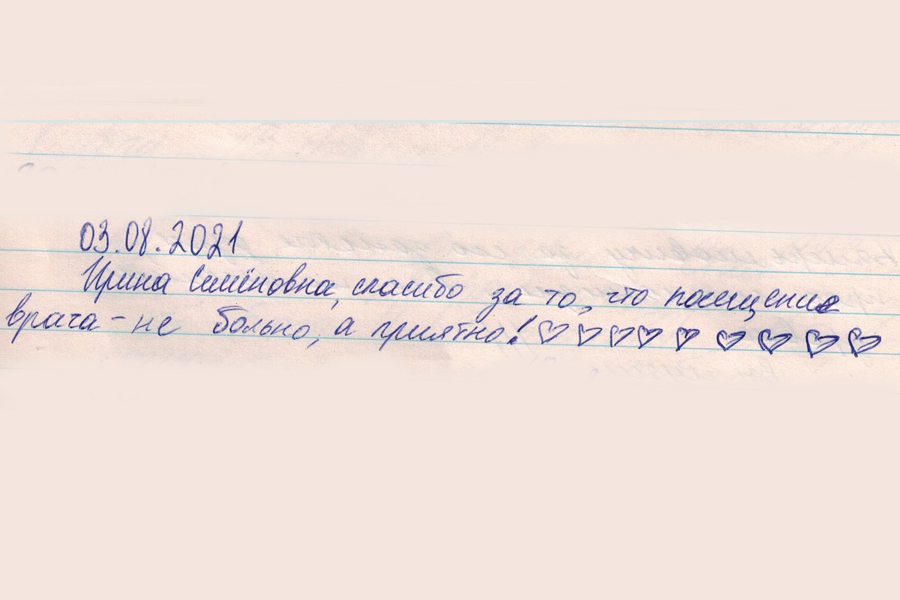 03.08.2021
Ирина Семёновна, спасибо за то, что посещение
врача - не больно, а приятно! ♡♡♡♡♡♡♡♡♡